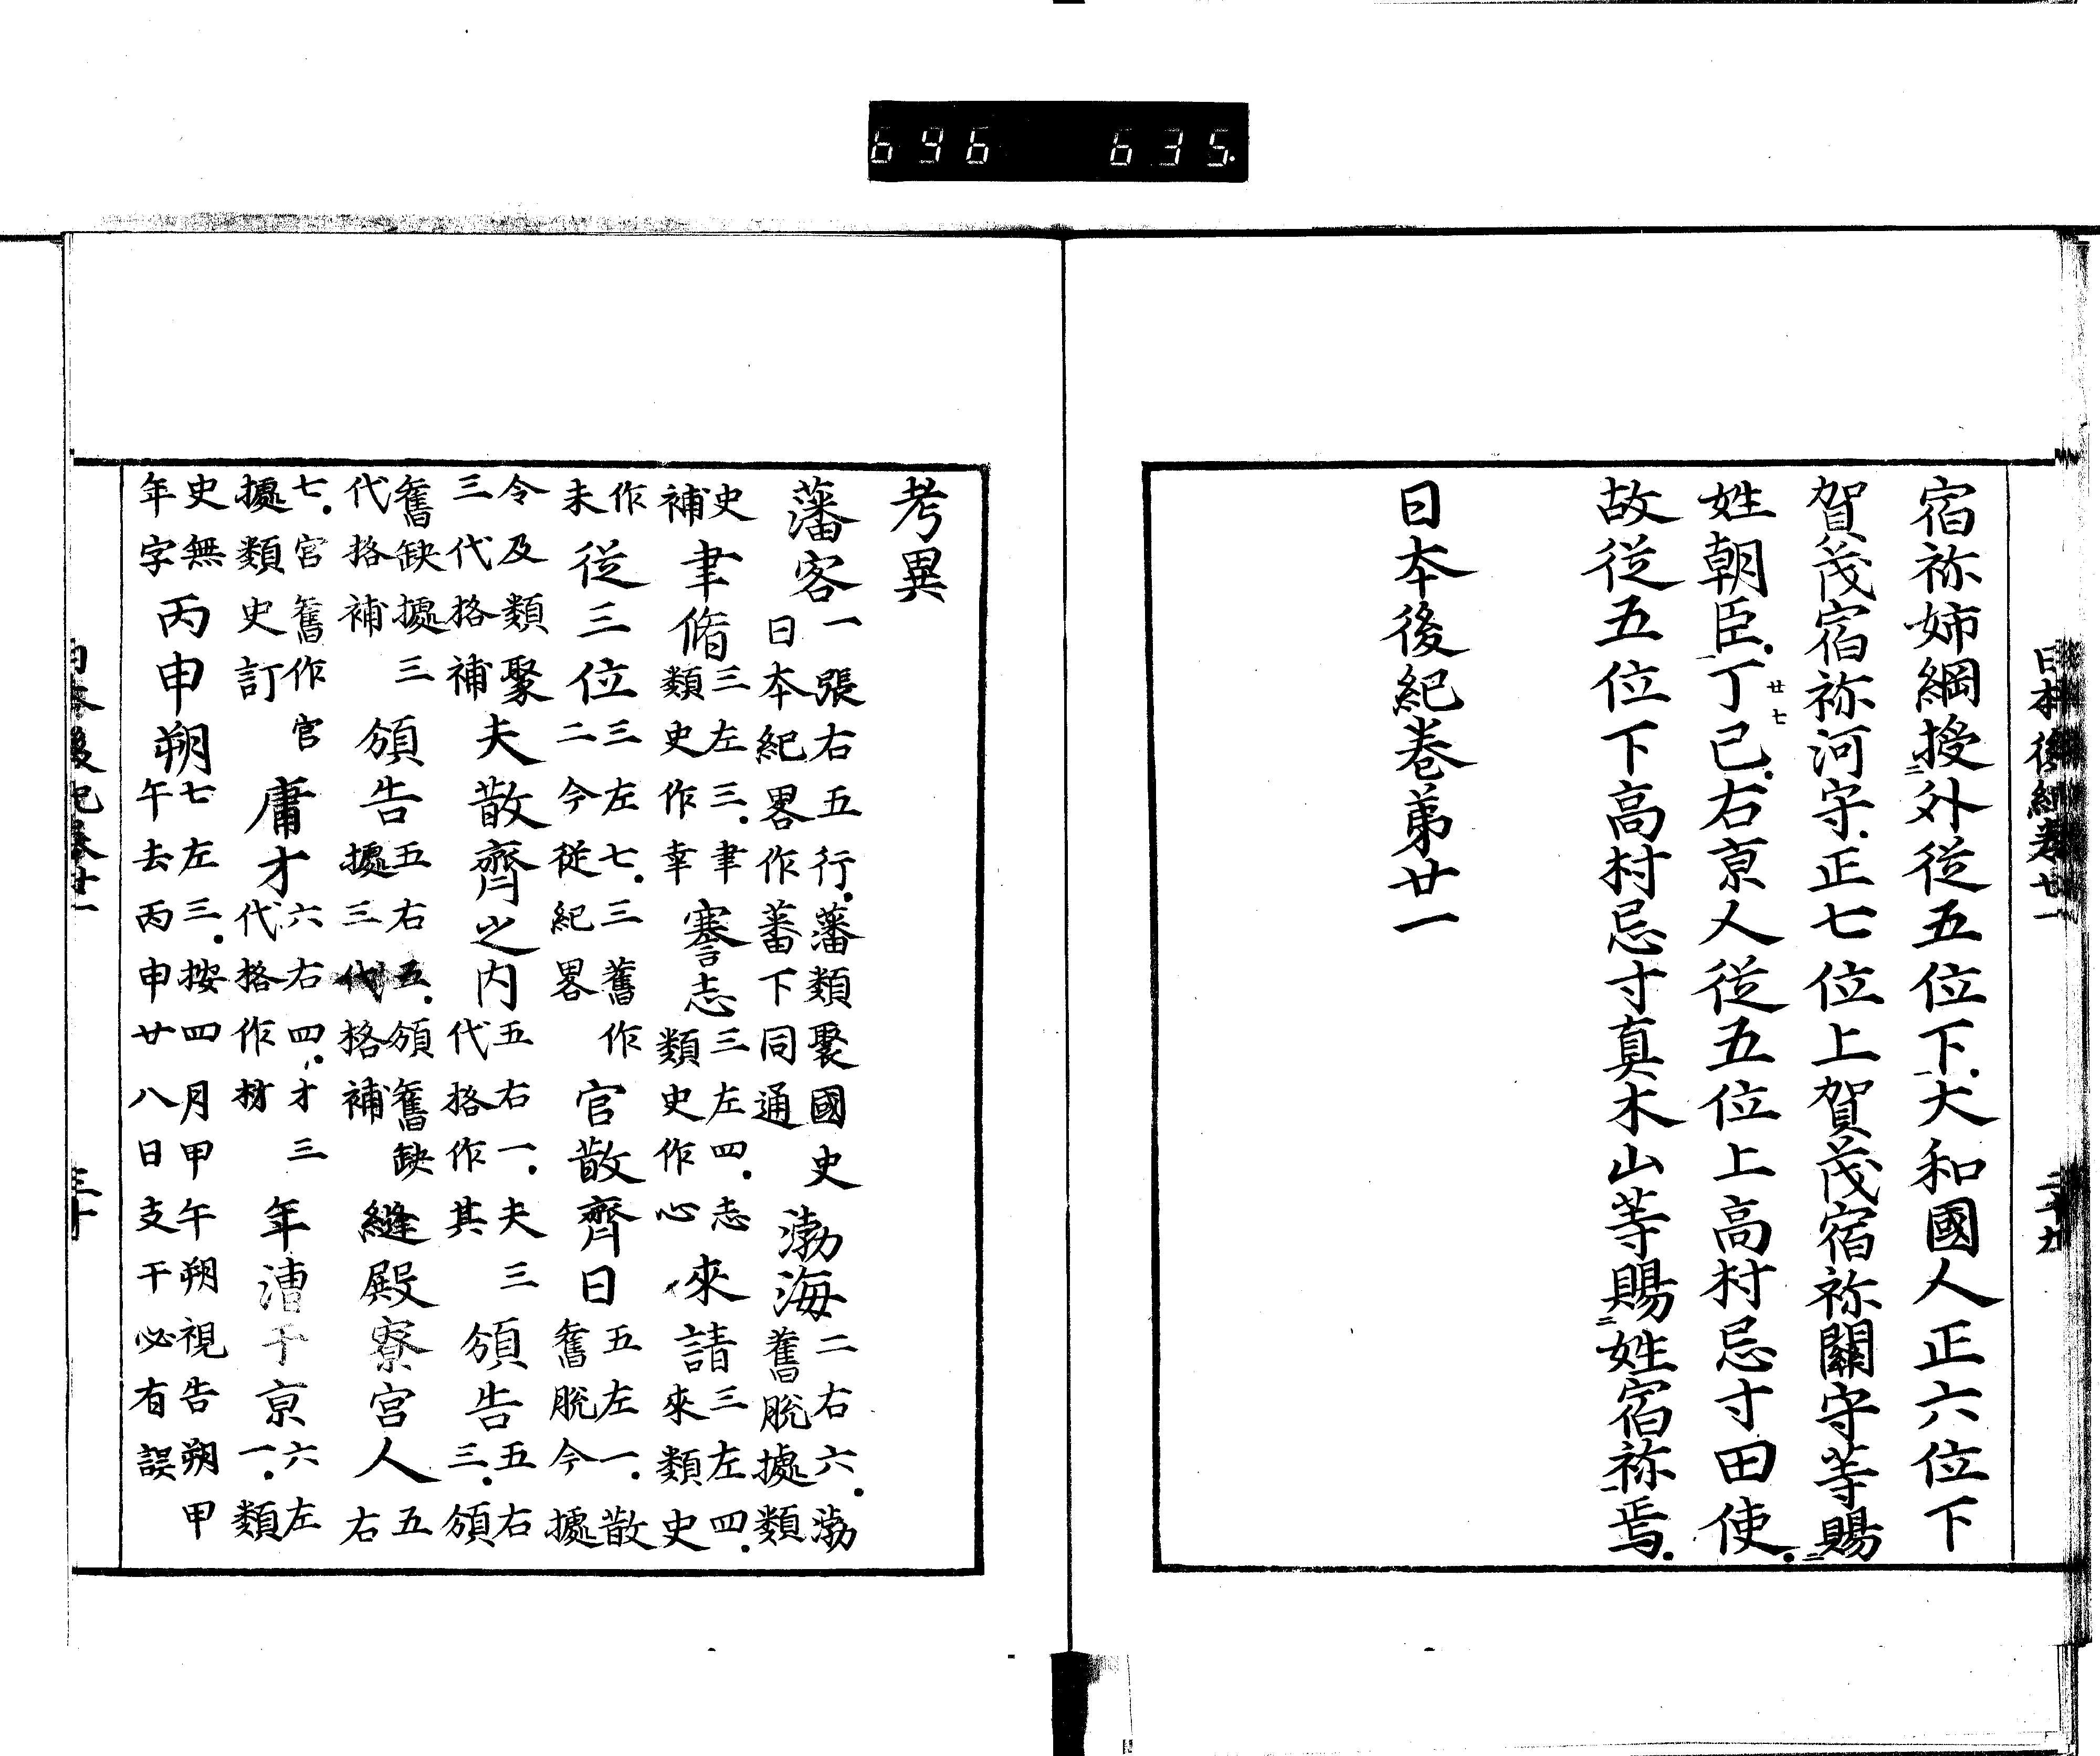 696 635.
日本後紀卷廿一
二十九
宿祢姉綱授二外從五位下一大和國人正六位下
賀茂宿祢河守.正七位上賀茂宿祢關守等賜二
姓朝臣.丁廿七巳.右京人從五位上高村忌寸田使.
故從五位下高村忌寸真木山等賜二姓宿祢一焉.
日本後紀卷第廿一
考異
藩客
一張右五行.藩類聚國史
日本紀畧作蕃下同通
渤海
二右六.渤
舊脫據類
史
補
聿脩
三左三.聿
類史作幸
謇志
三左四.志
類史作心
來請
三左四.
來類史
作
未
從三位
三左七.三舊作
二今從紀畧
官散齊日
五左一.散
舊脫今據
令及類聚
三代格補
夫散齊之內
五右一.夫三
代格作其
頒告
五右
三.頒
舊缺據三
代格補
頒告
五右五.頒舊缺
據三代格補
縫殿寮宮人
五
右
七.宮舊作官
據類史訂
庸才
六右四.才三
代格作材
年漕于京
六左
一.類
史無
年字
丙申朔
七左三.按四月甲午朔視告朔甲
午去丙申廿八日支干必有誤
日本後紀卷廿一
三十